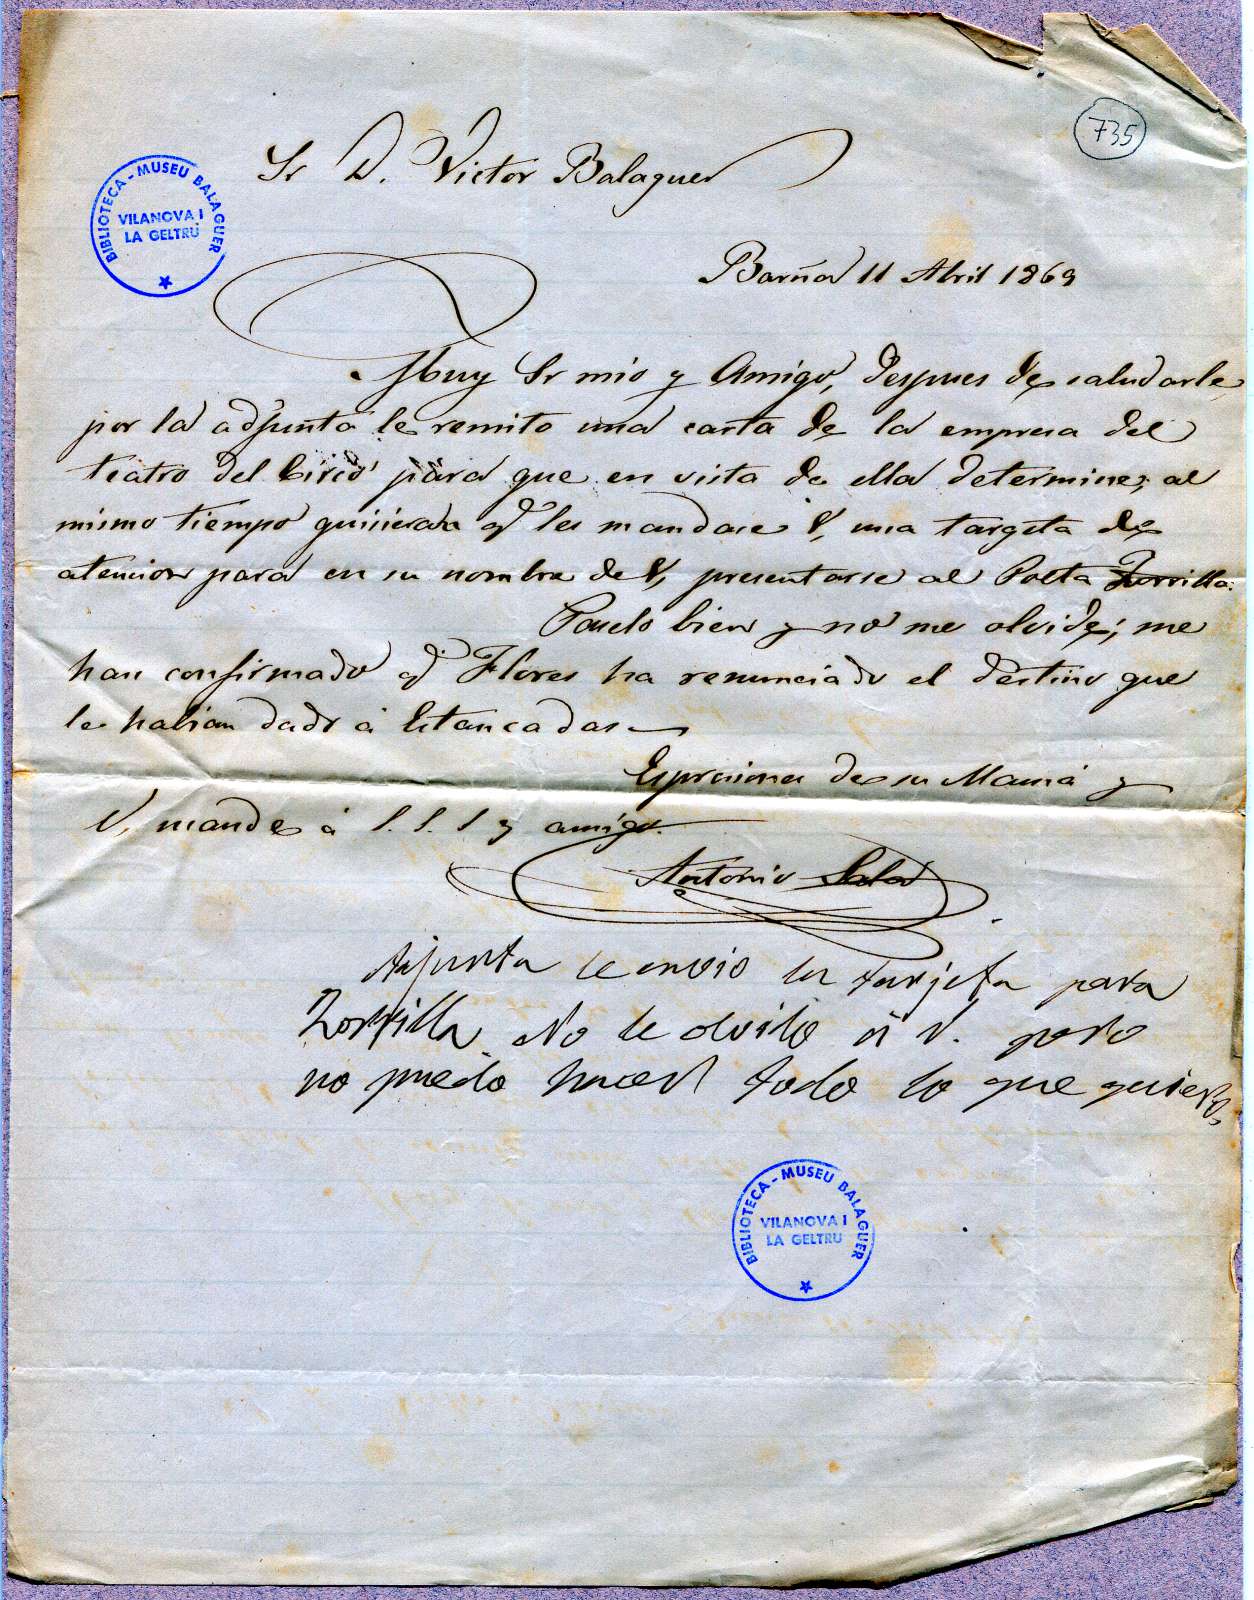 735
Sr D. Victor Balaguer
BIBLIOTECA - MUSEU BALAGUER
VILANOVA I
LA GELTRÚ
Barña 11 Abril 1869
Muy Sr mio y Amigo, despues de saludarle,
por la adjunta le remito una carta de la empresa del
teatro del Circo para que en vista de ella determine; al
mismo tiempo quisiera q les mandase V, una targeta de
atencion para en su nombre de V, presentarse al Poeta Zorrilla.
Páselo bien y no me olvide; me
han confirmado q Flores ha renunciado el destino que
le habian dado á Estancadas
Espresiones de su Mamá y
V, mande á S. S. S y amigo.
Antonio Sala
Ajunta le envio la tarjeta para
Zorrilla No le olvido á V. pero
no puedo hacer todo lo que quiero,
BIBLIOTECA - MUSEU BALAGUER
VILANOVA I
LA GELTRÚ